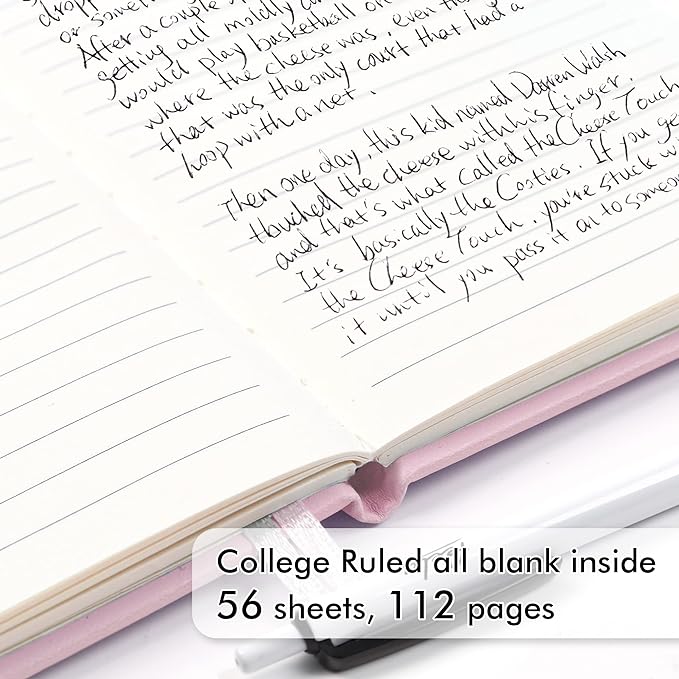 dropp
or somet
After a couple
getting all moldly an
would play basketball on
where the cheese was, even tho
that was the only court that had a
hoop with a net.
Then one day, this kid named Darren Walsh
touched the cheese with his finger.
and that's what called the Cheese Touch
It's basically the Cooties. If you ge
the Cheese Touch, you're stuck wi
it until you pass it on to someon
College Ruled all blank inside
56 sheets, 112 pages